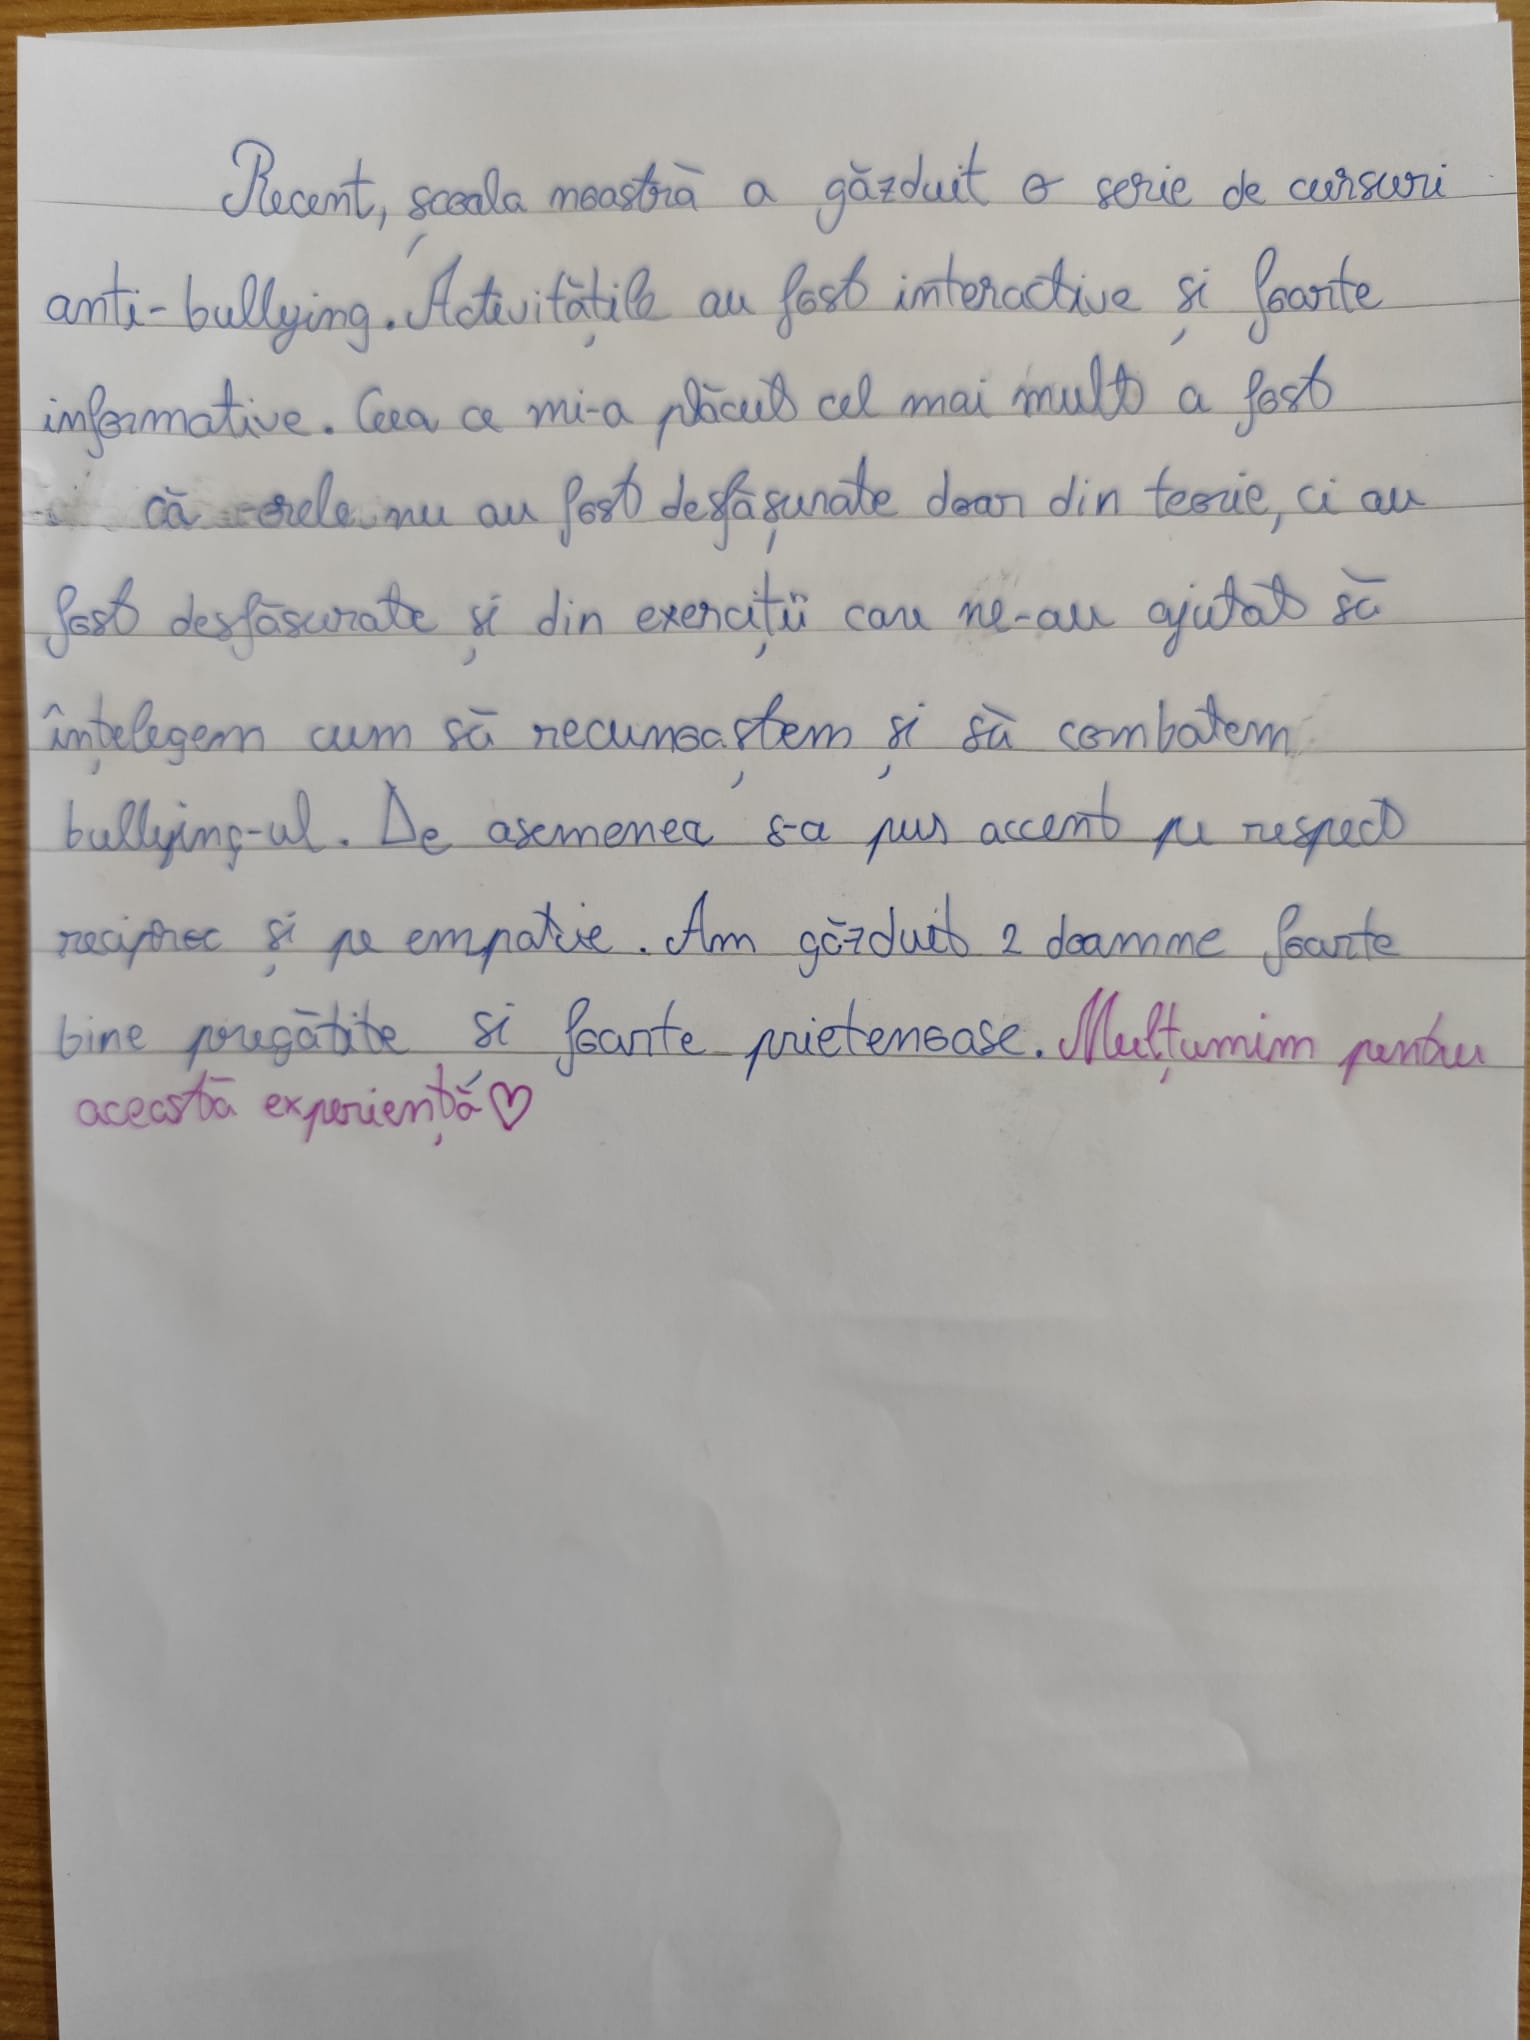 Recent, școala noastră a găzduit o serie de cursuri
anti-bullying. Activitățile au fost interactive și foarte
informative. Ceea ce mi-a plăcut cel mai mult a fost
că orele nu au fost desfășurate doar din teorie, ci au
fost desfășurate și din exerciții care ne-au ajutat să
înțelegem cum să recunoaștem și să combatem
bullying-ul. De asemenea s-a pus accent pe respect
reciproc și pe empatie. Am găzduit 2 doamne foarte
bine pregătite și foarte prietenoase. Mulțumim pentru
această experiență♡